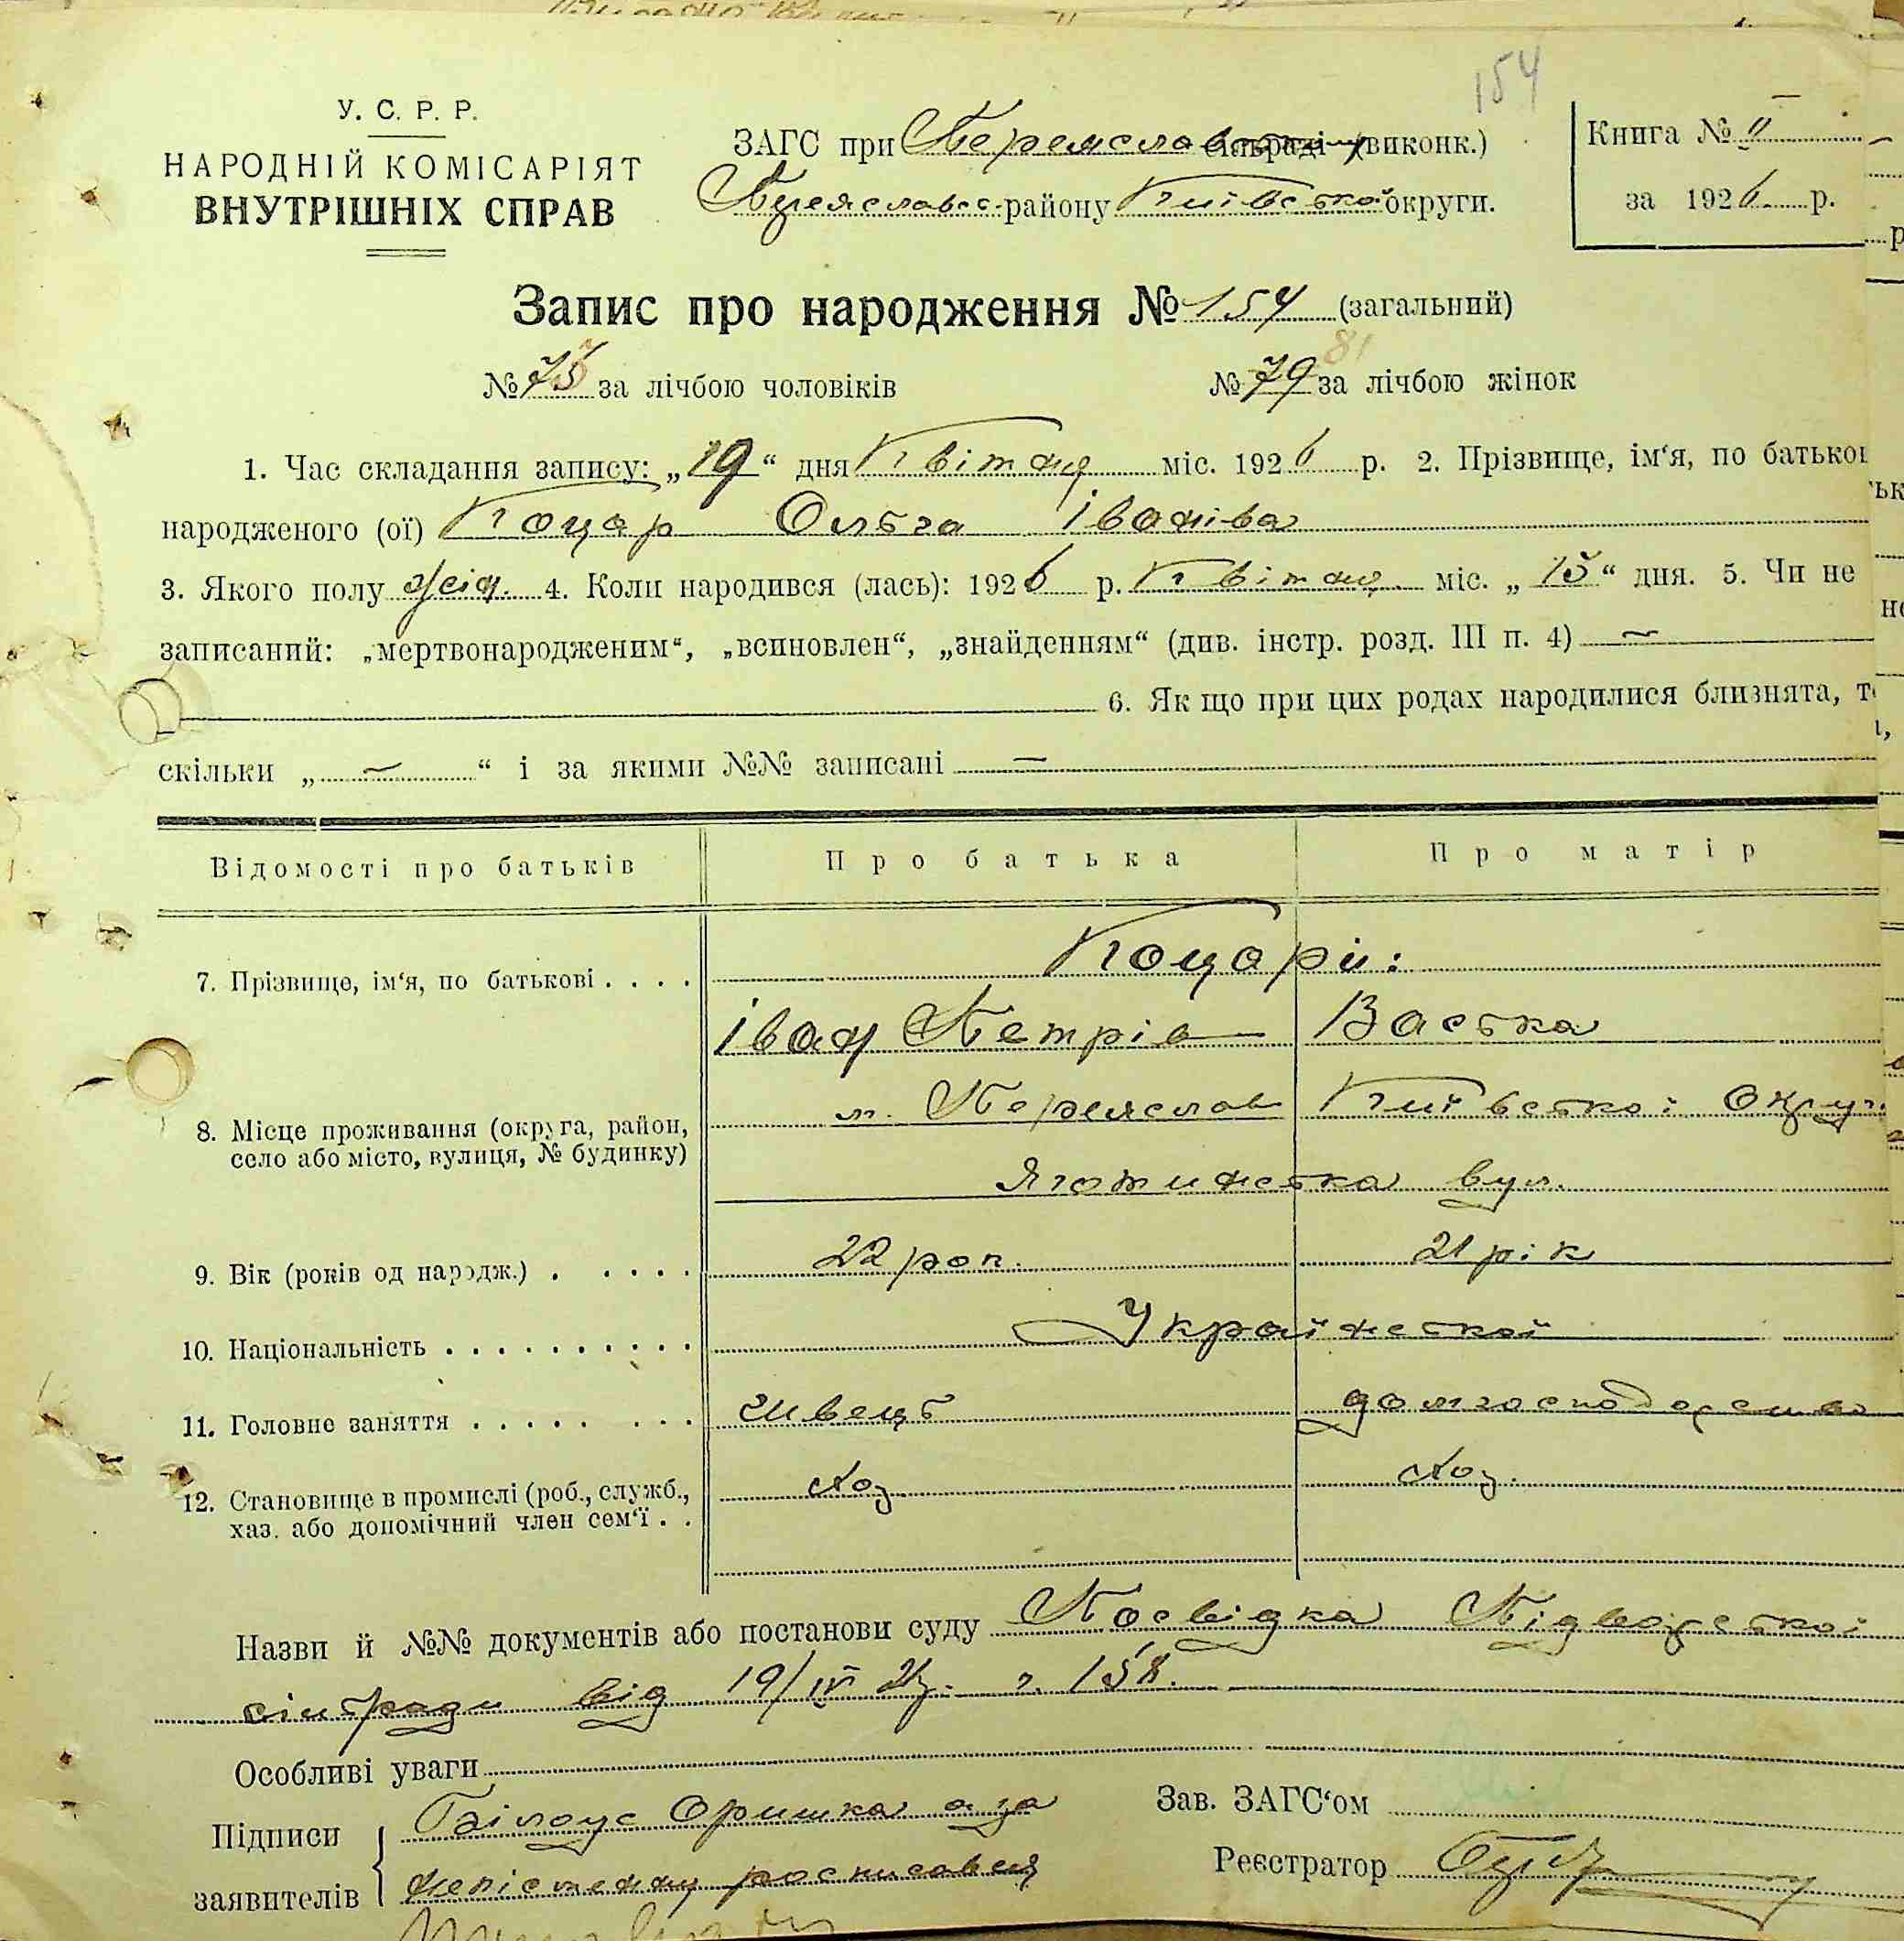 154
У. С. Р. Р.
НАРОДНІЙ КОМІСАРІЯТ
ВНУТРІШНІХ СПРАВ
ЗАГС при Переяславському сільраді (виконк.)
Переяславс. району Київської округи.
Книга № II
за 1926 р.
Запис про народження № 154 (загальний)
№ 73 за лічбою чоловіків № 79 81 за лічбою жінок
1. Час складання запису: „19“ дня Квітня міс. 1926 р. 2. Прізвище, ім‘я, по батькові
народженого (ої) Коцар Ольга Іванівa
3. Якого полу жін. 4. Коли народився (лась): 1926 р. Квітня міс. „15“ дня. 5. Чи не
записаний: „мертвонародженим“, „всиновлен“, „знайденням“ (див. інстр. розд. III п. 4) —
6. Як що при цих родах народилися близнята, т
скільки „ — “ і за якими №№ записані —
Відомості про батьків Про батька Про матір
7. Прізвище, ім‘я, по батькові . . . . Коцарі:
Іван Петрів Васька
8. Місце проживання (округа, район, м. Переяслав Київської Округ.
село або місто, вулиця, № будинку)
Яготинська вул.
9. Вік (років од народж.) . . . . . 22 рок. 21 рік
10. Національність . . . . . . . . . . Української
11. Головне заняття . . . . . . . . швець домгосподарство
12. Становище в промислі (роб., служб., Хоз Хоз.
хаз. або допомічний член сем‘ї . .
Назви й №№ документів або постанови суду Посвідка Підворської
сільради від 19/IV 26 р. № 158.
Особливі уваги
Підписи заявителів { Білоус Оришка а за
неписьменну росписався
Зав. ЗАГС‘ом
Реєстратор